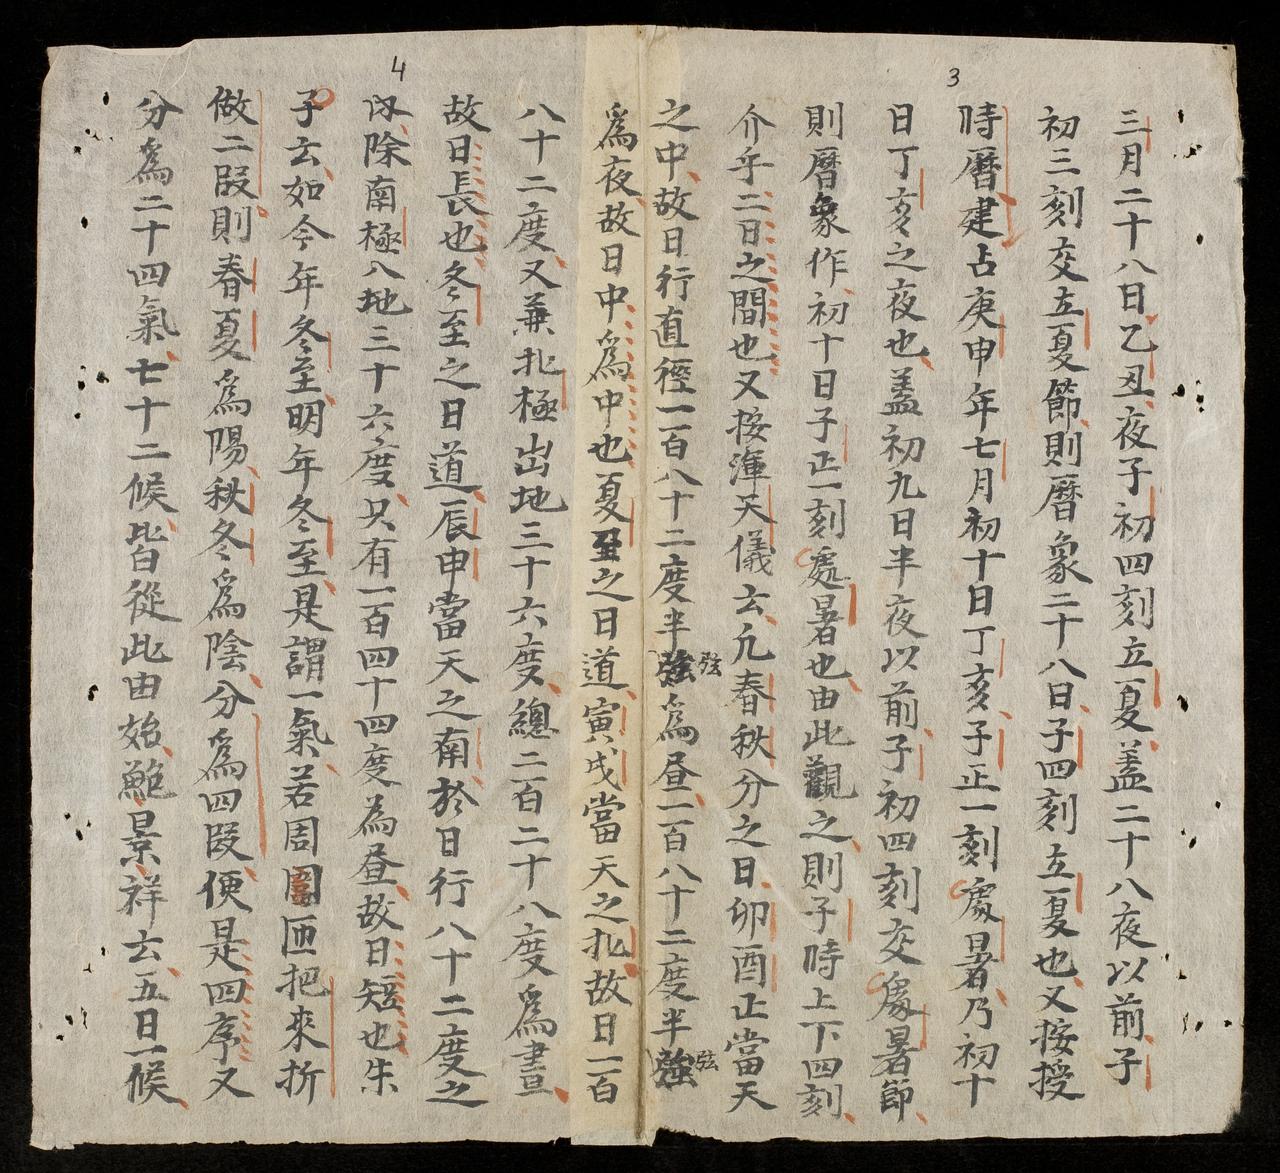 3
三月二十八日乙丑夜子初四刻立夏蓋二十八夜以前子
初三刻交立夏節則曆象二十八日子四刻立夏也又按授
時曆建占庚申年七月初十日丁亥子正一刻處暑乃初十
日丁亥之夜也蓋初九日半夜以前子初四刻交處暑節
則曆象作初十日子正一刻處暑也由此觀之則子時上下四刻
介乎二日之間也又按渾天儀云凡春秋分之日卯酉正當天
之中故日行直徑一百八十二度半強弦為昼一百八十二度半強弦
爲夜故日中爲中也夏至之日道寅戌當天之北故日一百
八十二度又兼北極出地三十六度總二百二十八度爲晝
故日長也冬至之日道辰申當天之南於日行八十二度之
內除南極入地三十六度只有一百四十四度為昼故日短也朱
子云如今年冬至明年冬至是謂一氣若周圍匝把來折
做二段則春夏爲陽秋冬爲陰分爲四段便是四序又
分爲二十四氣七十二候皆從此由始鮑景祥云五日一候
4